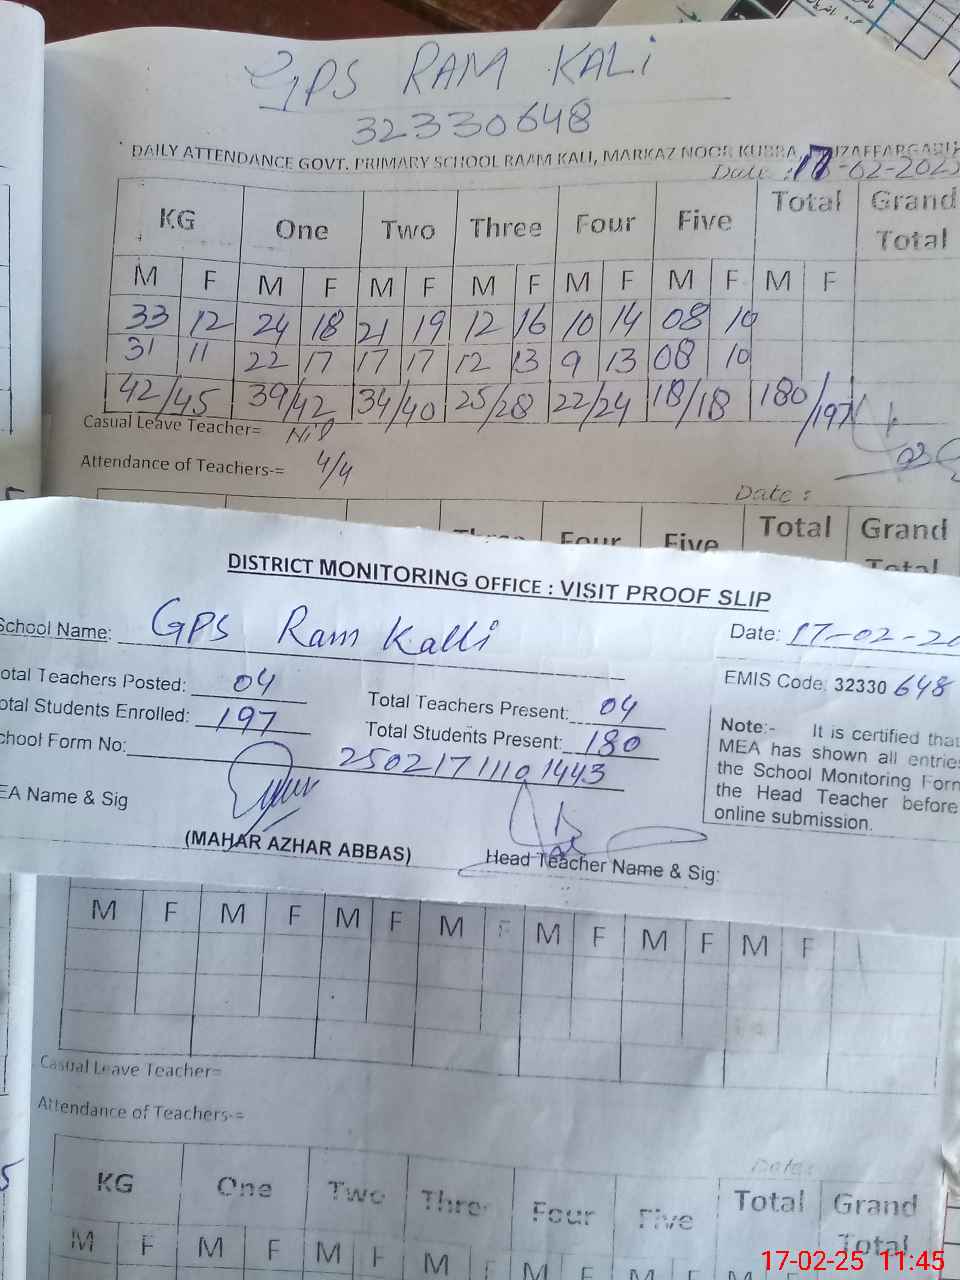 GPS RAM KALi
32330648
DAILY ATTENDANCE GOVT. PRIMARY SCHOOL RAAM KALI, MARKAZ NOOR KUBRA,
Date : 17-02-202
KG One Two Three Four Five Total Grand Total
M F M F M F M F M F M F M F
33 12 24 18 21 19 12 16 10 14 08 10
31 11 22 17 17 17 12 13 9 13 08 10
42/45 39/42 34/40 25/28 22/24 18/18 180/197
Casual Leave Teacher= Nil
Attendance of Teachers-= 4/4
Date :
Three Four Five Total Grand Total
DISTRICT MONITORING OFFICE : VISIT PROOF SLIP
School Name: GPS Ram Kalli
Date: 17-02-20
otal Teachers Posted: 04
Total Teachers Present: 04
EMIS Code: 32330 648
otal Students Enrolled: 197
Total Students Present: 180
chool Form No: 2502171110 1443
Note:- It is certified that
MEA has shown all entries
the School Monitoring Form
the Head Teacher before
online submission.
EA Name & Sig
(MAHAR AZHAR ABBAS)
Head Teacher Name & Sig:
M F M F M F M F M F M F M F
Casual Leave Teacher=
Attendance of Teachers-=
Date:
KG One Two Three Four Five Total Grand Total
M F M F M F M F M F M F M F
17-02-25 11:45